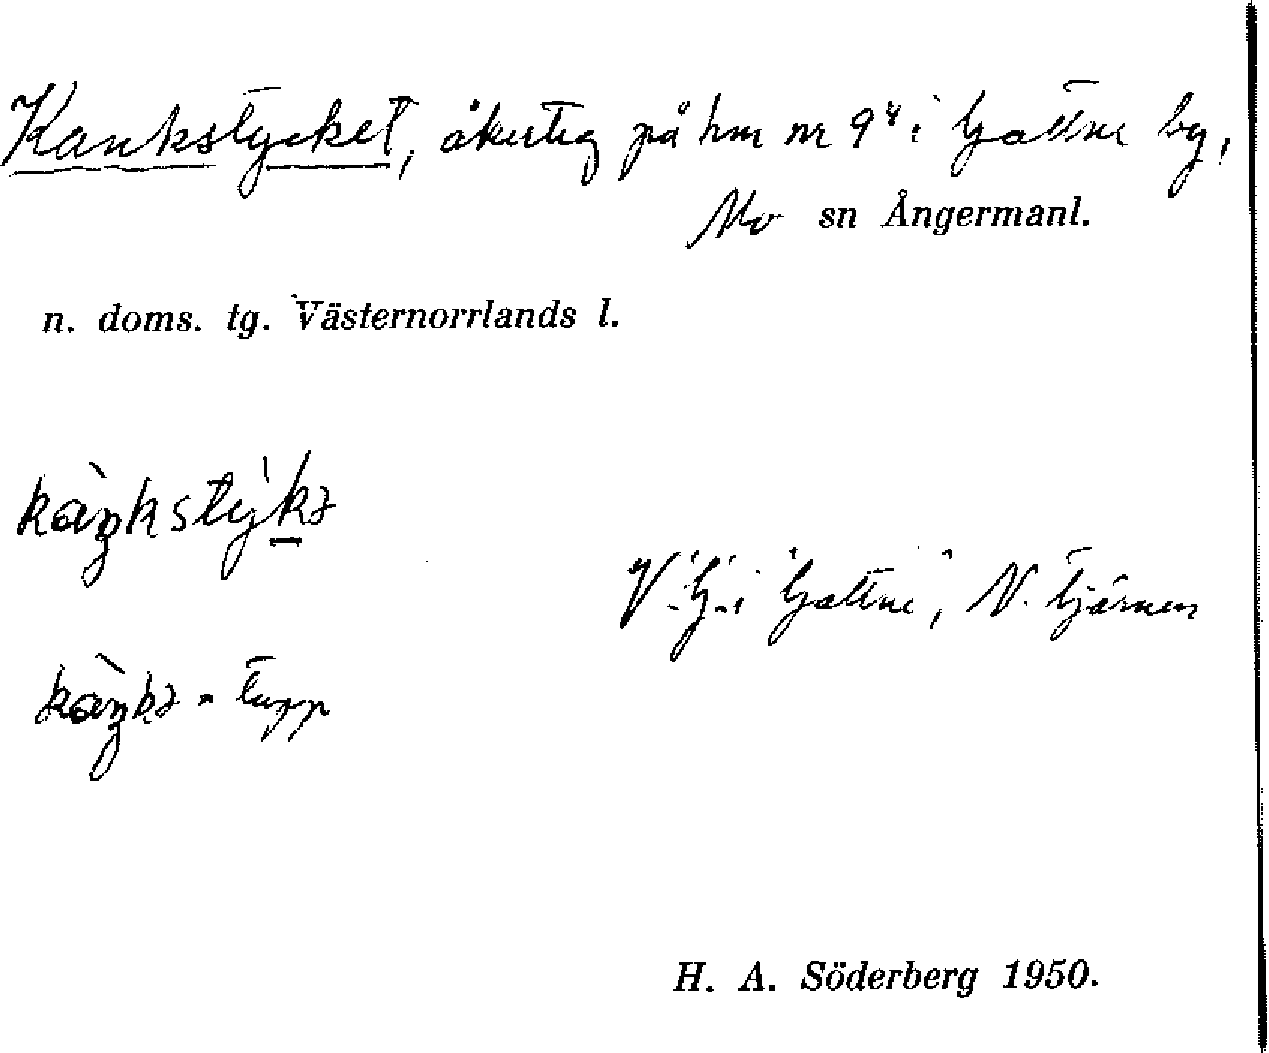 Kankstycket, åkerteg på hm nr 9⁴ i Gottne by,
Mo sn Ångermanl.
n. doms. tg. Västernorrlands l.
kàŋkstỳkə
V. G. i Gottne, N. Tjärnen
kàŋkə - tupp
H. A. Söderberg 1950.